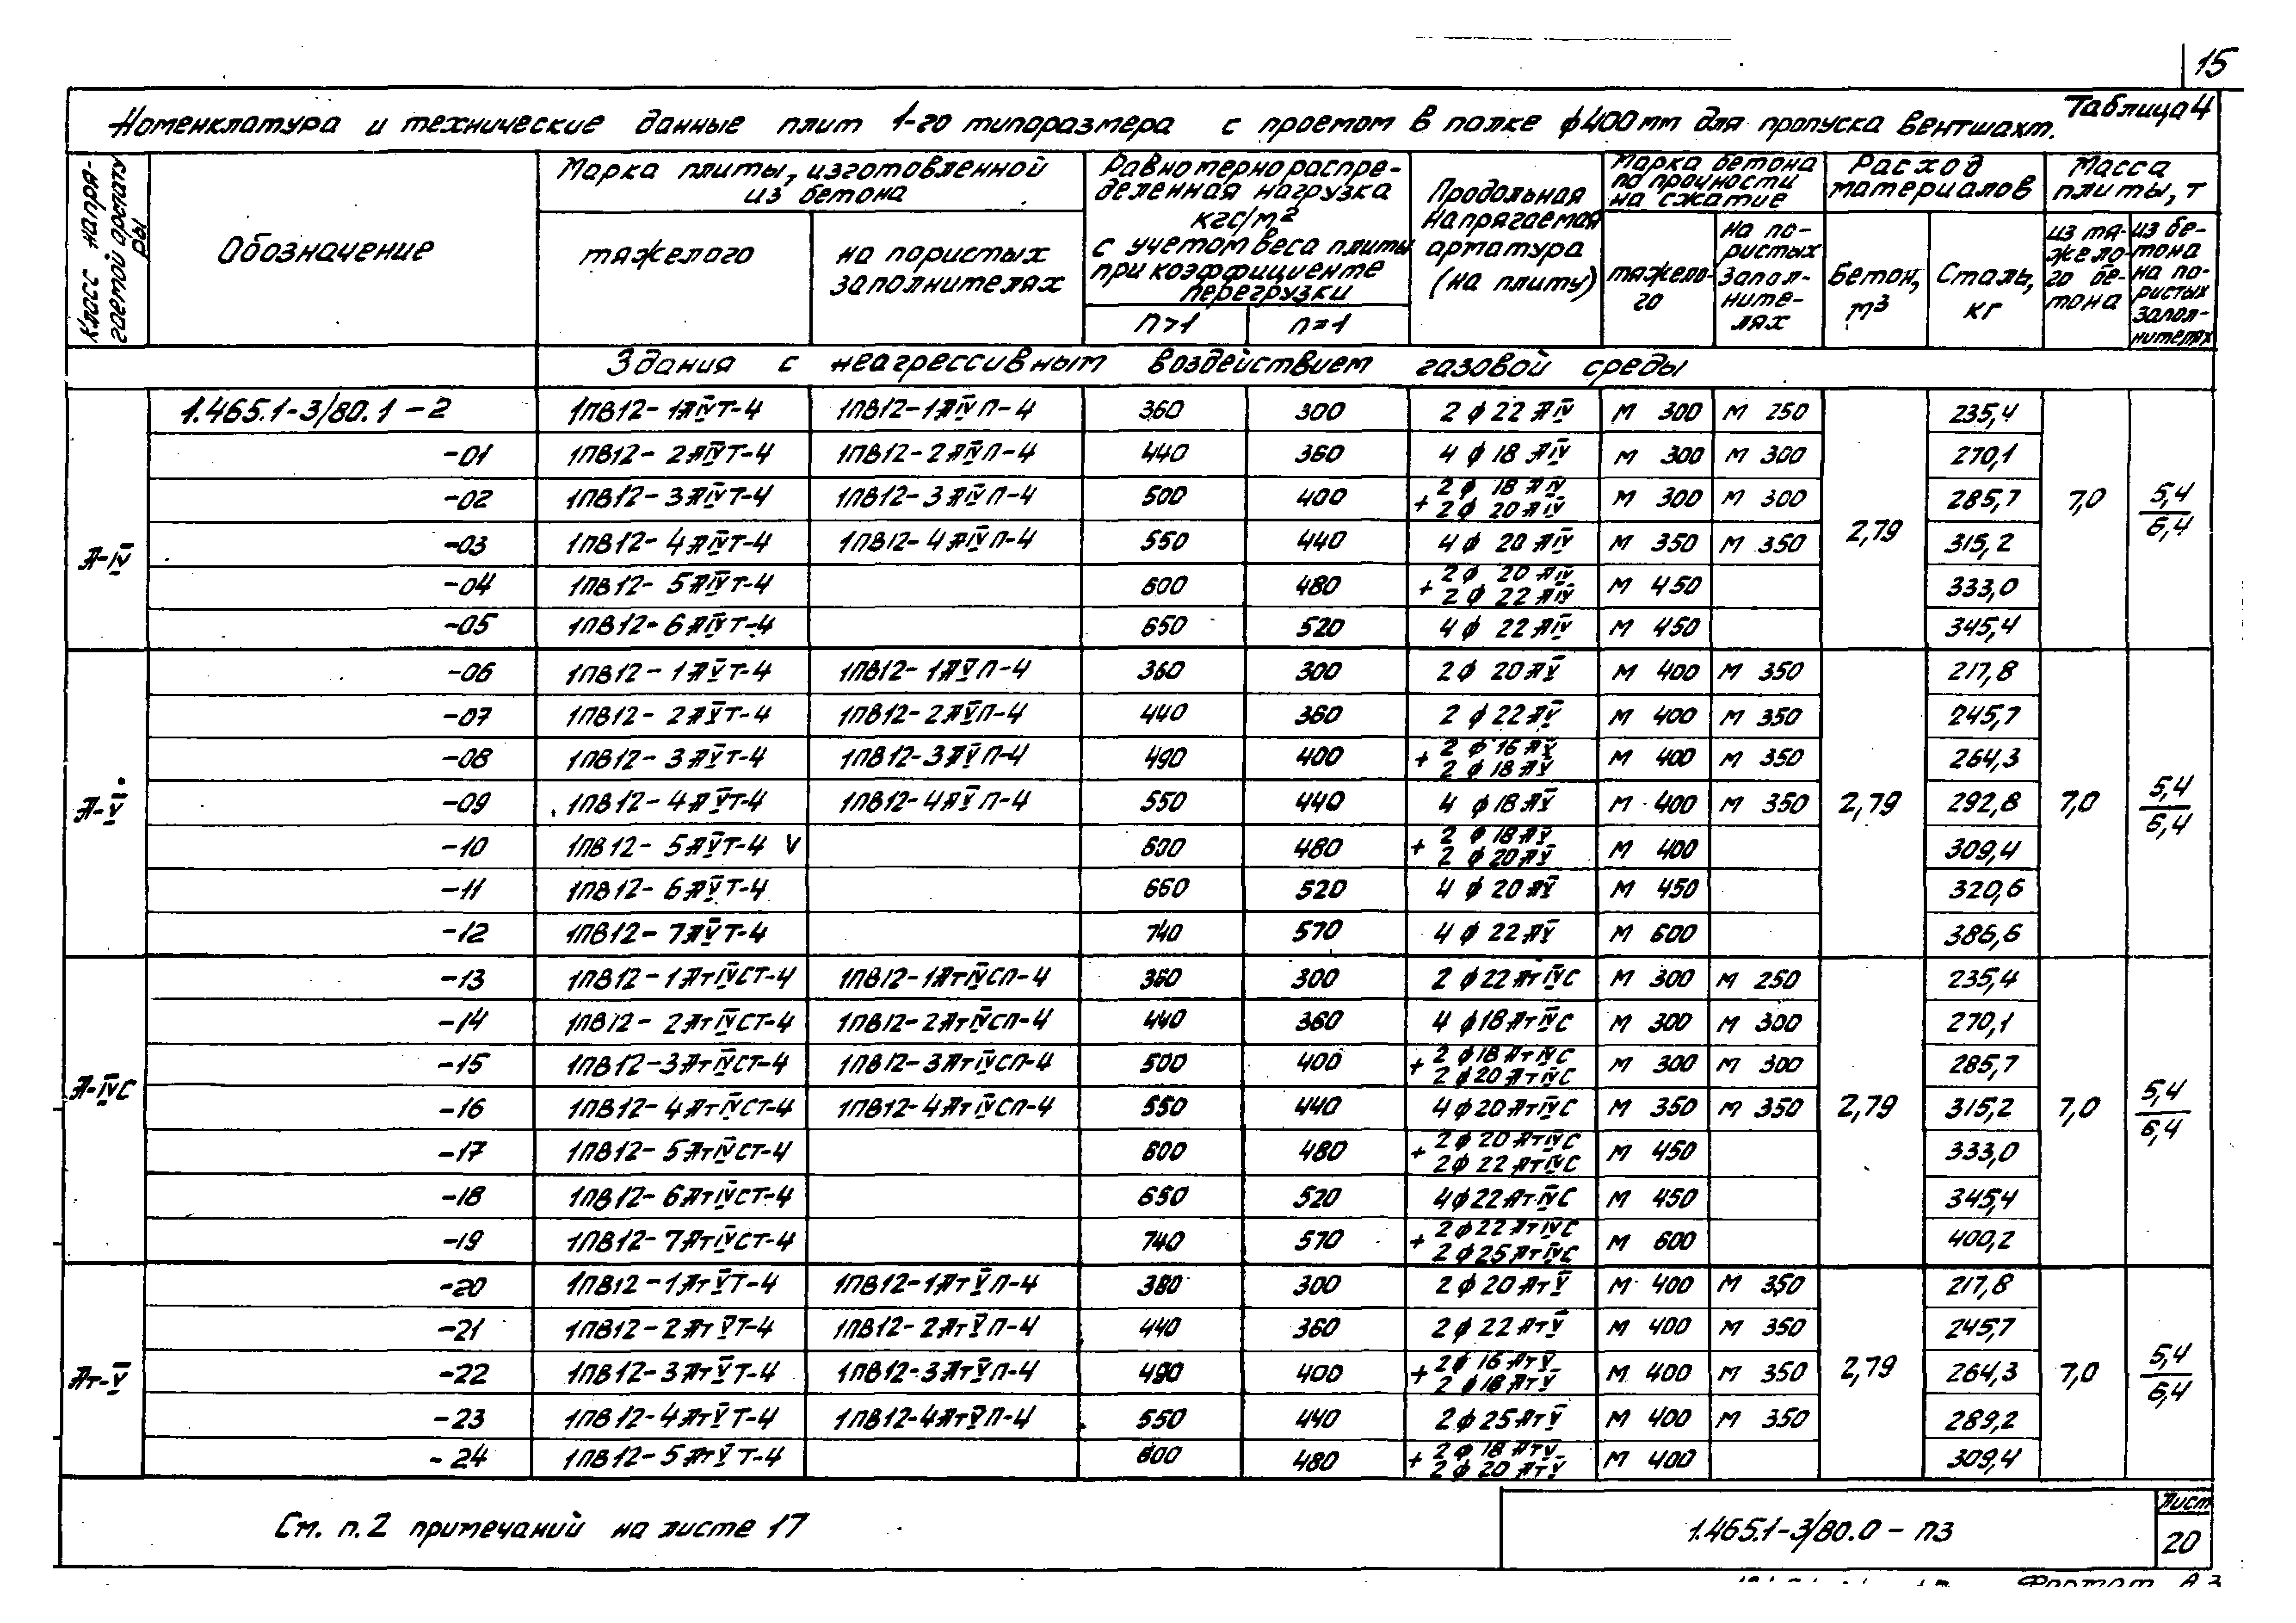 15
Таблица 4
Номенклатура и технические данные плит 1-го типоразмера с проемом в полке ф400мм для пропуска вентшахт.
Класс напрягаемой арматуры
Обозначение
Марка плиты, изготовленной из бетона
тяжелого
на пористых заполнителях
Равномерно распределенная нагрузка кгс/м² с учетом веса плиты при коэффициенте перегрузки
n>1
n=1
Продольная напрягаемая арматура (на плиту)
Марка бетона по прочности на сжатие
тяжелого
на пористых заполнителях
Расход материалов
Бетон, м³
Сталь, кг
Масса плиты, т
из тяжелого бетона
из бетона на пористых заполнителях
Здания с неагрессивным воздействием газовой среды
А-IV
1.465.1-3/80.1 -2 1ПВ12-1АIVТ-4 1ПВ12-1АIVП-4 360 300 2 ф 22 АIV М 300 М 250 235,4
-01 1ПВ12-2АIVТ-4 1ПВ12-2АIVП-4 440 360 4 ф 18 АIV М 300 М 300 270,1
-02 1ПВ12-3АIVТ-4 1ПВ12-3АIVП-4 500 400 2 ф 18 АIV + 2 ф 20 АIV М 300 М 300 285,7
-03 1ПВ12-4АIVТ-4 1ПВ12-4АIVП-4 550 440 4 ф 20 АIV М 350 М 350 315,2
-04 1ПВ12-5АIVТ-4 600 480 2 ф 20 АIV + 2 ф 22 АIV М 450 333,0
-05 1ПВ12-6АIVТ-4 650 520 4 ф 22 АIV М 450 345,4
2,79 7,0 5,4/6,4
А-V
-06 1ПВ12-1АVТ-4 1ПВ12-1АVП-4 360 300 2 ф 20 АV М 400 М 350 217,8
-07 1ПВ12-2АVТ-4 1ПВ12-2АVП-4 440 360 2 ф 22 АV М 400 М 350 245,7
-08 1ПВ12-3АVТ-4 1ПВ12-3АVП-4 490 400 2 ф 16 АV + 2 ф 18 АV М 400 М 350 264,3
-09 1ПВ12-4АVТ-4 1ПВ12-4АVП-4 550 440 4 ф 18 АV М 400 М 350 292,8
-10 1ПВ12-5АVТ-4 V 600 480 2 ф 18 АV + 2 ф 20 АV М 400 309,4
-11 1ПВ12-6АVТ-4 660 520 4 ф 20 АV М 450 320,6
-12 1ПВ12-7АVТ-4 740 570 4 ф 22 АV М 600 386,6
2,79 7,0 5,4/6,4
А-IVС
-13 1ПВ12-1АтIVСТ-4 1ПВ12-1АтIVСП-4 360 300 2 ф 22 АтIVС М 300 М 250 235,4
-14 1ПВ12-2АтIVСТ-4 1ПВ12-2АтIVСП-4 440 360 4 ф 18 АтIVС М 300 М 300 270,1
-15 1ПВ12-3АтIVСТ-4 1ПВ12-3АтIVСП-4 500 400 2 ф 18 АтIVС + 2 ф 20 АтIVС М 300 М 300 285,7
-16 1ПВ12-4АтIVСТ-4 1ПВ12-4АтIVСП-4 550 440 4 ф 20 АтIVС М 350 М 350 315,2
-17 1ПВ12-5АтIVСТ-4 600 480 2 ф 20 АтIVС + 2 ф 22 АтIVС М 450 333,0
-18 1ПВ12-6АтIVСТ-4 650 520 4 ф 22 АтIVС М 450 345,4
-19 1ПВ12-7АтIVСТ-4 740 570 2 ф 22 АтIVС + 2 ф 25 АтIVС М 600 400,2
2,79 7,0 5,4/6,4
Ат-V
-20 1ПВ12-1АтVТ-4 1ПВ12-1АтVП-4 360 300 2 ф 20 АтV М 400 М 350 217,8
-21 1ПВ12-2АтVТ-4 1ПВ12-2АтVП-4 440 360 2 ф 22 АтV М 400 М 350 245,7
-22 1ПВ12-3АтVТ-4 1ПВ12-3АтVП-4 490 400 2 ф 16 АтV + 2 ф 18 АтV М 400 М 350 264,3
-23 1ПВ12-4АтVТ-4 1ПВ12-4АтVП-4 550 440 2 ф 25 АтV М 400 М 350 289,2
-24 1ПВ12-5АтVТ-4 600 480 2 ф 18 АтV + 2 ф 20 АтV М 400 309,4
2,79 7,0 5,4/6,4
См. п.2 примечаний на листе 17
1.465.1-3/80.0 - ПЗ
Лист
20
Формат А3